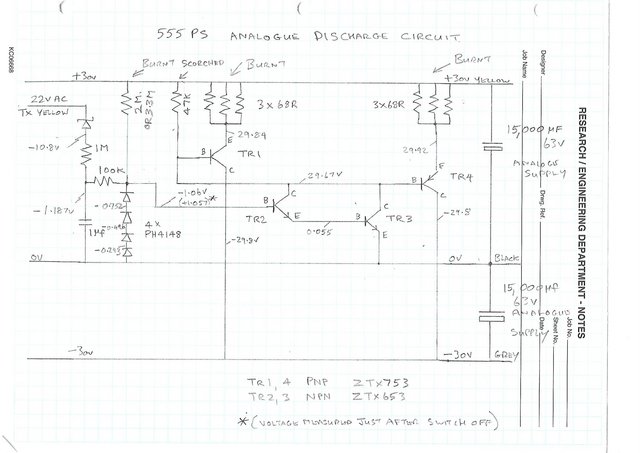 555 PS ANALOGUE DISCHARGE CIRCUIT.
BURNT SCORCHED BURNT BURNT
+30V +30V YELLOW
22V AC
TX YELLOW
2M2
OR 3.3M
47K
3x68R 3x68R
-10.8V
1M
29.84
TR1
29.92
15,000 MF
63V
ANALOGUE
SUPPLY
100K
B E C
29.67V
TR4
-1.187V
-1.06V
(+1.057)*
TR2
TR3
0.055
-29.8V
-29.8
1Mf
4x
PH4148
0V 0V BLACK
15,000 Mf
63V
ANALOGUE
SUPPLY
-30V -30V GREY
TR1, 4 PNP ZTX753
TR2, 3 NPN ZTX653
* (VOLTAGE MEASURED JUST AFTER SWITCH OFF)
KC06668
RESEARCH / ENGINEERING DEPARTMENT - NOTES
Job Name
Designer
Drwg. Ref.
Date
Sheet No.
Job No.